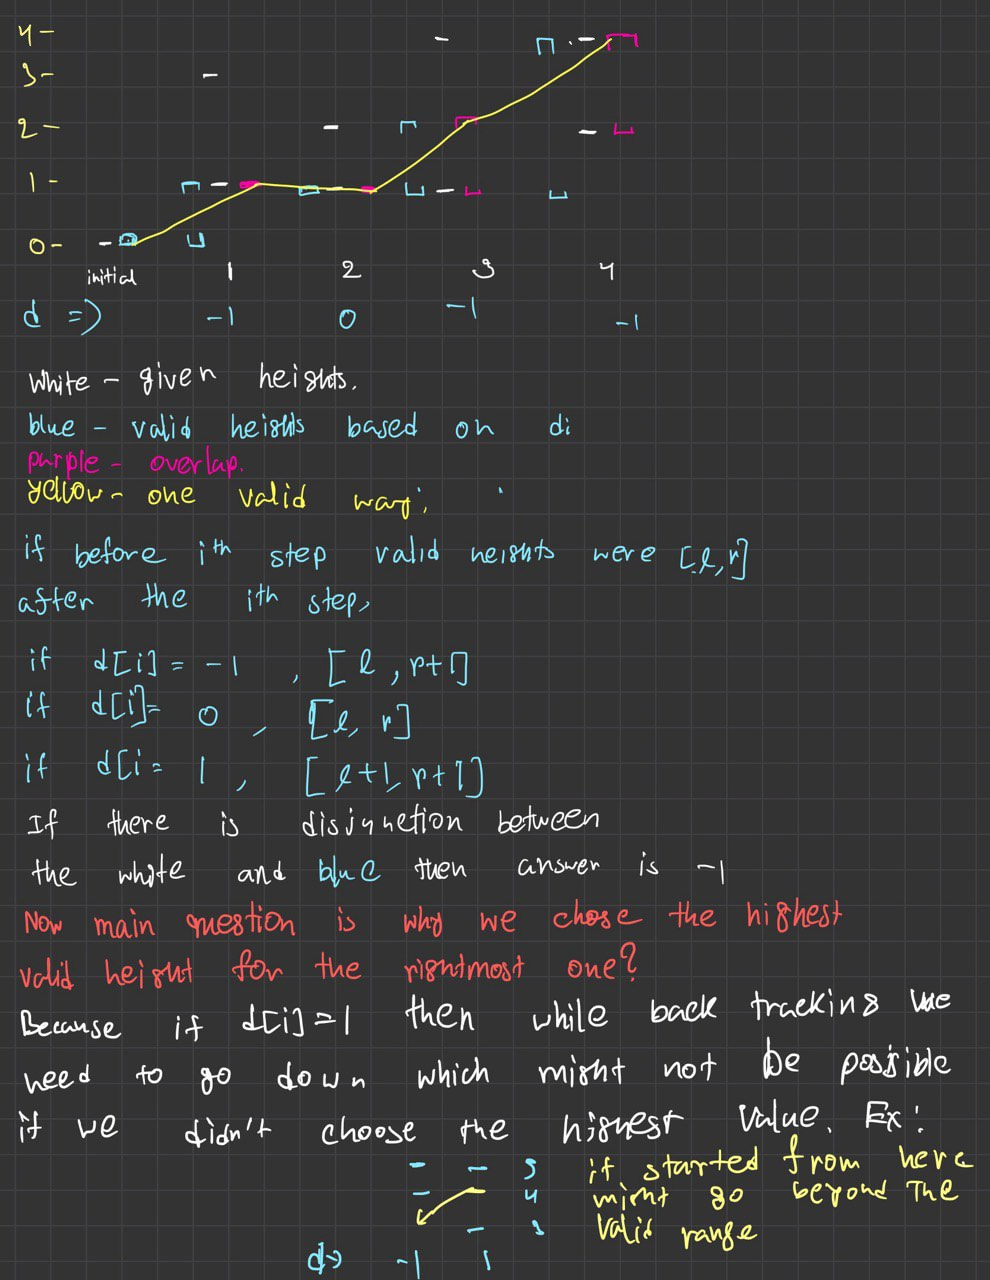 4-
3-
2-
1-
0-
initial 1 2 3 4
d => -1 0 -1 -1
White - given heights.
blue - valid heights based on di
purple - overlap.
yellow - one valid way;
if before ith step valid heights were [l,r]
after the ith step,
if d[i] = -1 , [l , r+1]
if d[i]= 0 , [l, r]
if d[i = 1 , [l+1, r+1]
If there is disjunction between
the white and blue then answer is -1
Now main question is why we chose the highest
valid height for the rightmost one?
Because if d[i]=1 then while back tracking we
need to go down which might not be possible
if we didn't choose the highest value. Ex:
5 if started from here
4 might go beyond The
3 valid range
d-> -1 1